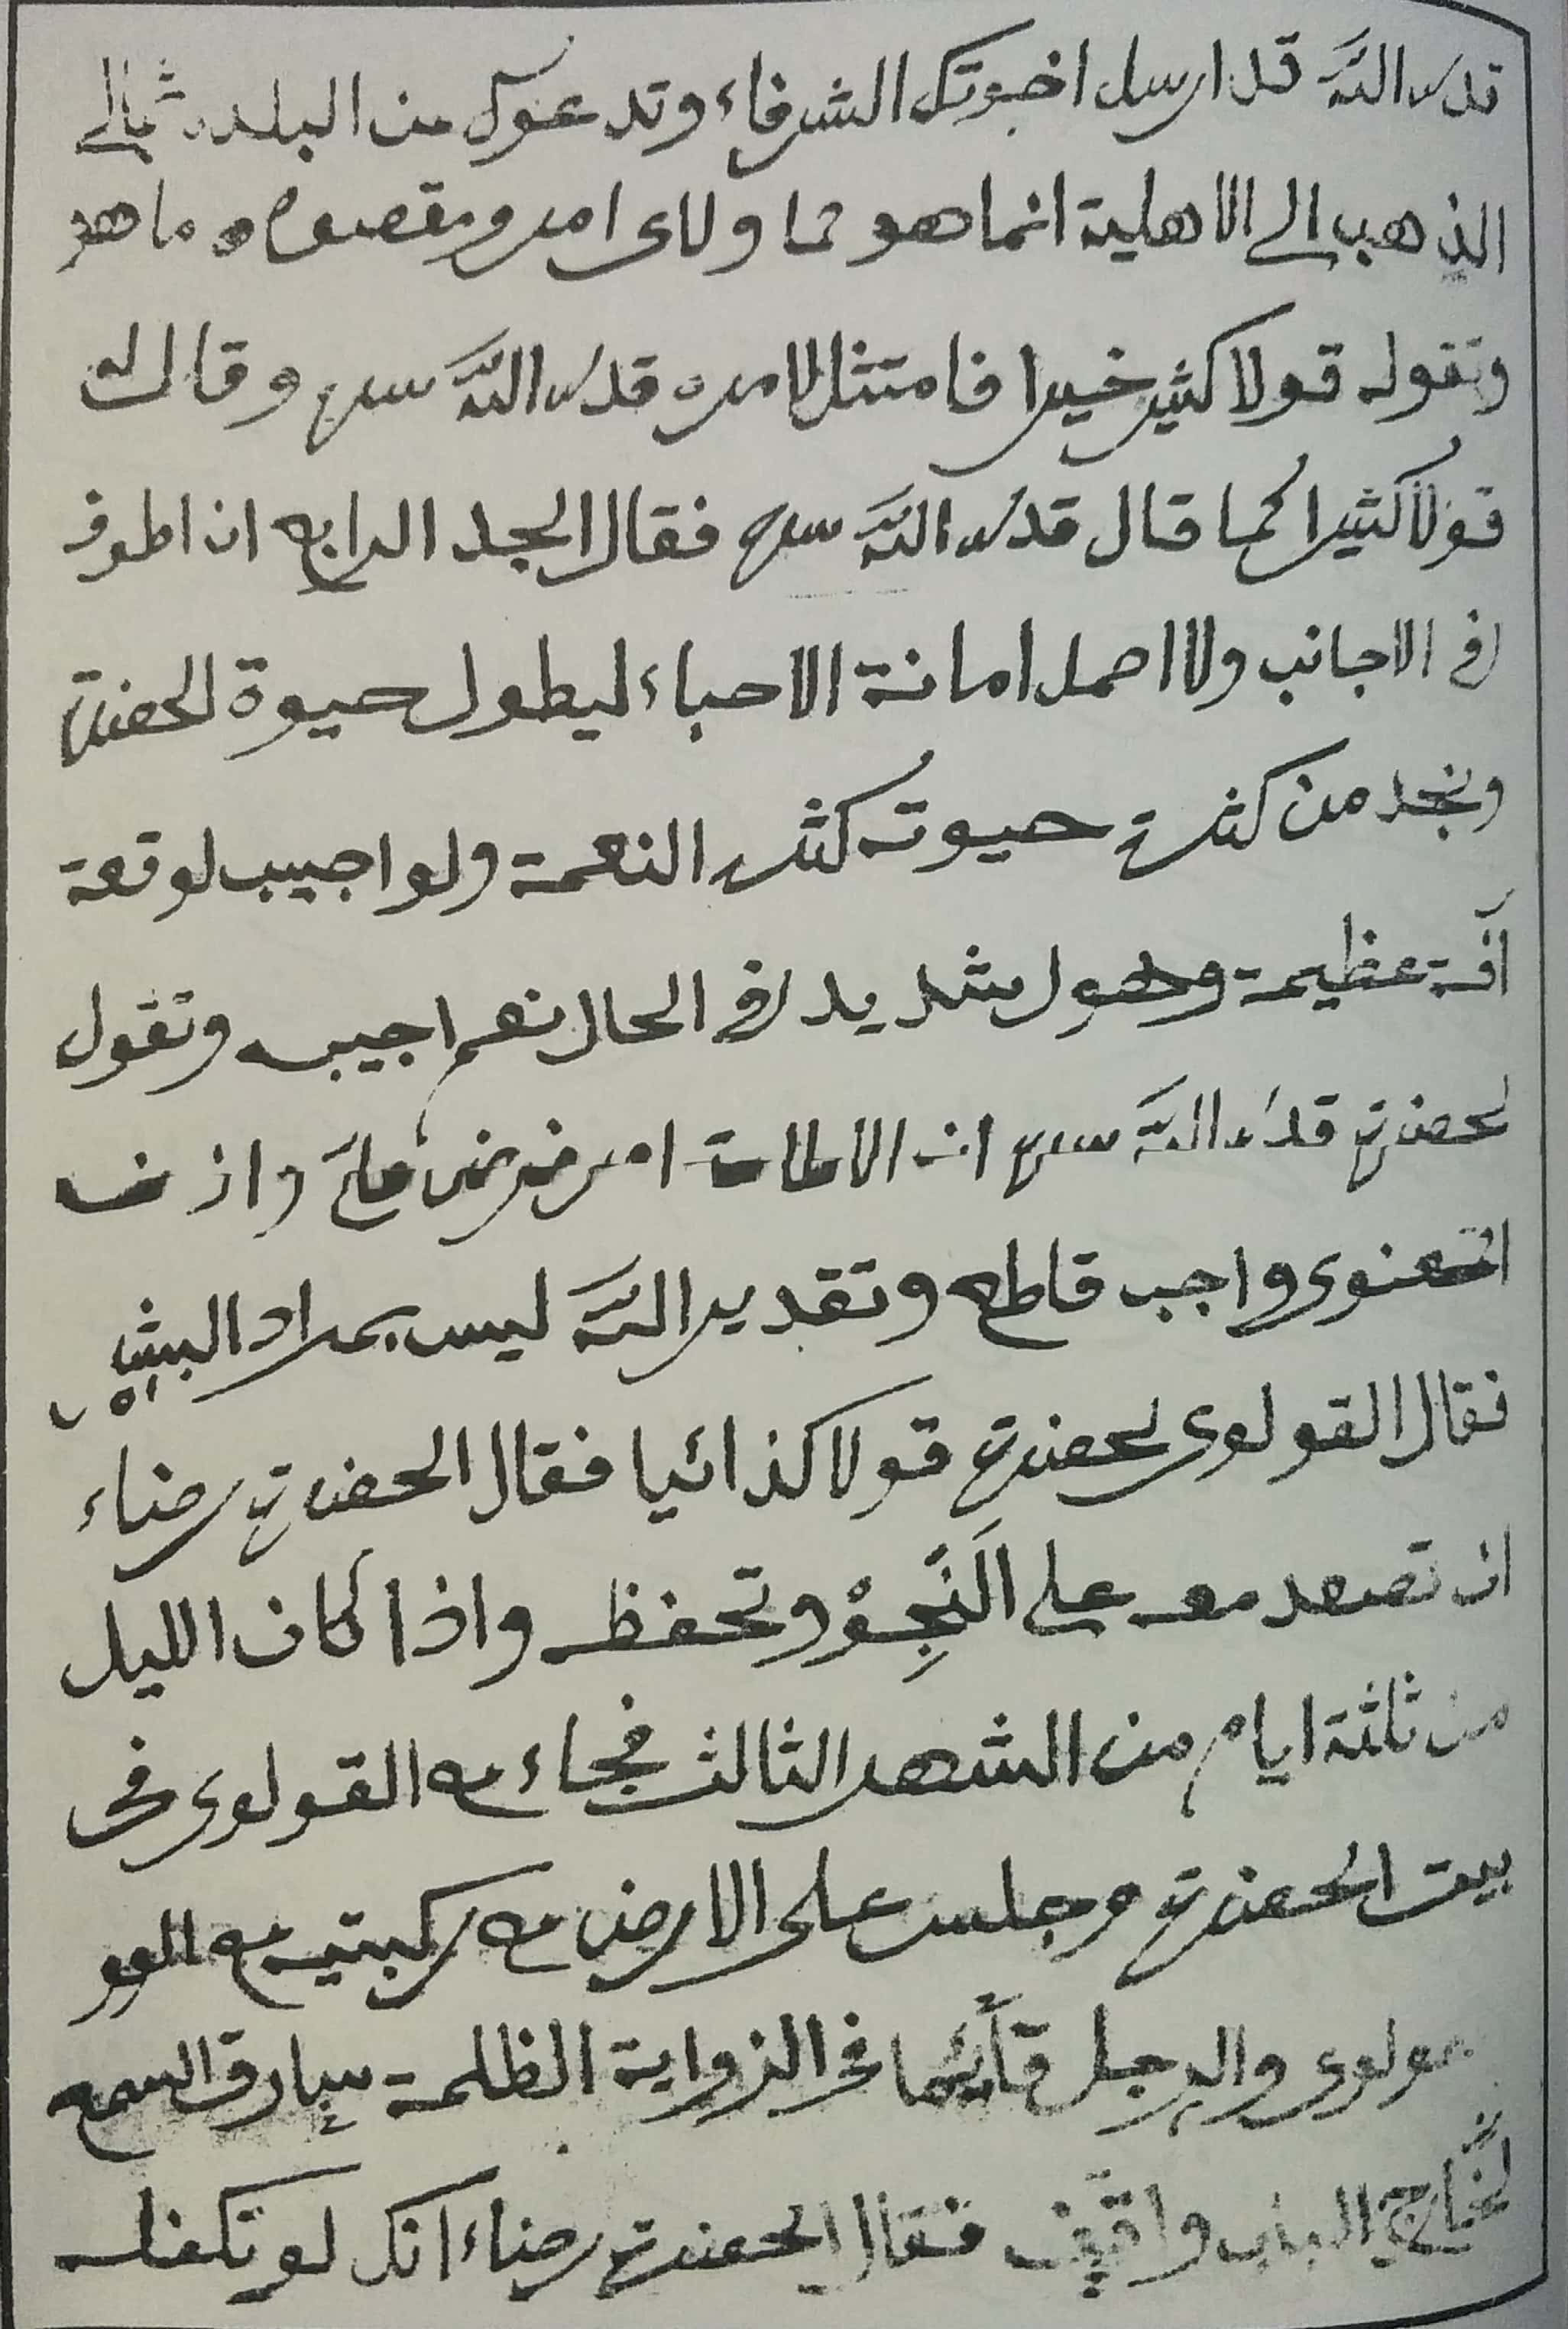 قدس الله قد ارسل اخبوتك الشرفاء وتدعوك من البلدة
الذهب الى الاهلية انما هو مما ولاى امر ومقصود وما هو
وتقوله قولا كثير خيرا فامتثل لامره قدس الله سره وقال له
قولا كثيرا كما قال قدس الله سره فقال الجد الرابع انا اطوف
فى الاجانب ولا احمل امانة الاحباء ليطول حيوة الحضرة
ونجد من كثرة حيوته كثر النعمة ولو اجيب لوقعة
آفة عظيمة وهول شديد فى الحال نعم اجيبه وتقول
لحضرة قدس الله سره ان الاطاعة امر فرض على واذن
المعنوى واجب قاطع وتقدير الله ليس بمراد البشر
فقال القولوى لحضرة قولا كذائيا فقال الحضرة رضاء
ان تصعد معه على النجو وتحفظه واذا كان الليل
من ثلثة ايام من الشهر الثالث فجاء مع القولوى فى
بيت الحضرة وجلس على الارض مع ركبتيه مع
مولوى والرجل قائما فى الزواية الظلمة سارق السمع
الباب واقف فقال الحضرة رضاء انك لو تكفله